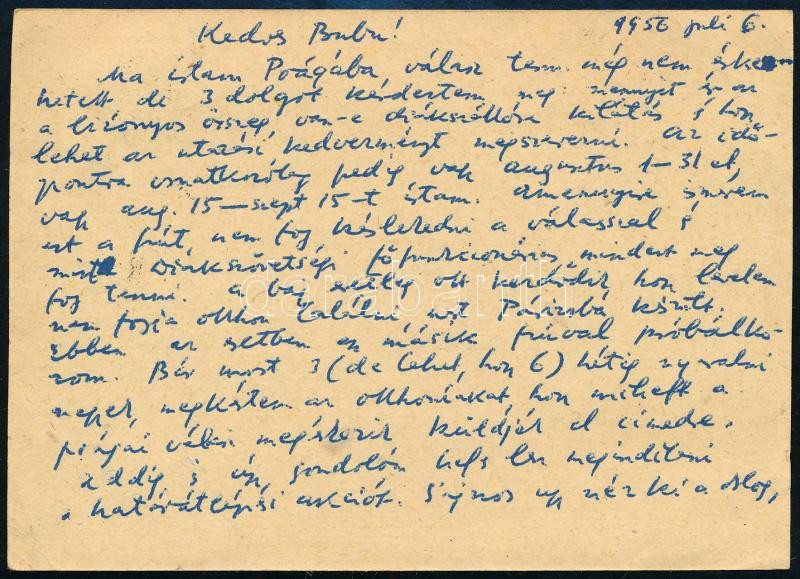 1956 juli 6.
Kedves Bubu!
Ma írtam Prágába, válasz term. még nem érke-
hetett de 3 dolgot kérdeztem meg mennyit ér az
a bizonyos összeg, van-e diákszállóra kilátás s hon
lehet az utazási kedvezményt megszerezni. az idő-
pontra vonatkozólag pedig vagy augusztus 1–31 et,
vagy aug. 15–szept 15-t írtam. amennyire ismerem
ezt a fiút, nem fog késlekedni a válasszal s
mint diákszövetségi főfunkcionárius, mindent meg
fog tenni. a baj esetleg ott kezdődik hogy levelem
nem fogja otthon találni mert Párizsba készült.
Ebben az esetben egy másik fiúval próbálko-
zom. Bár most 3 (de lehet, hogy 6) hétig nyaralni
megyek, megkértem az otthoniakat, hogy mihelyt a
prágai válasz megérkezik küldjék el címedre.
addig is úgy gondolom meg lehet indítani
a határátlépési akciót. Sajnos úgy néz ki a dolog,
darabanth